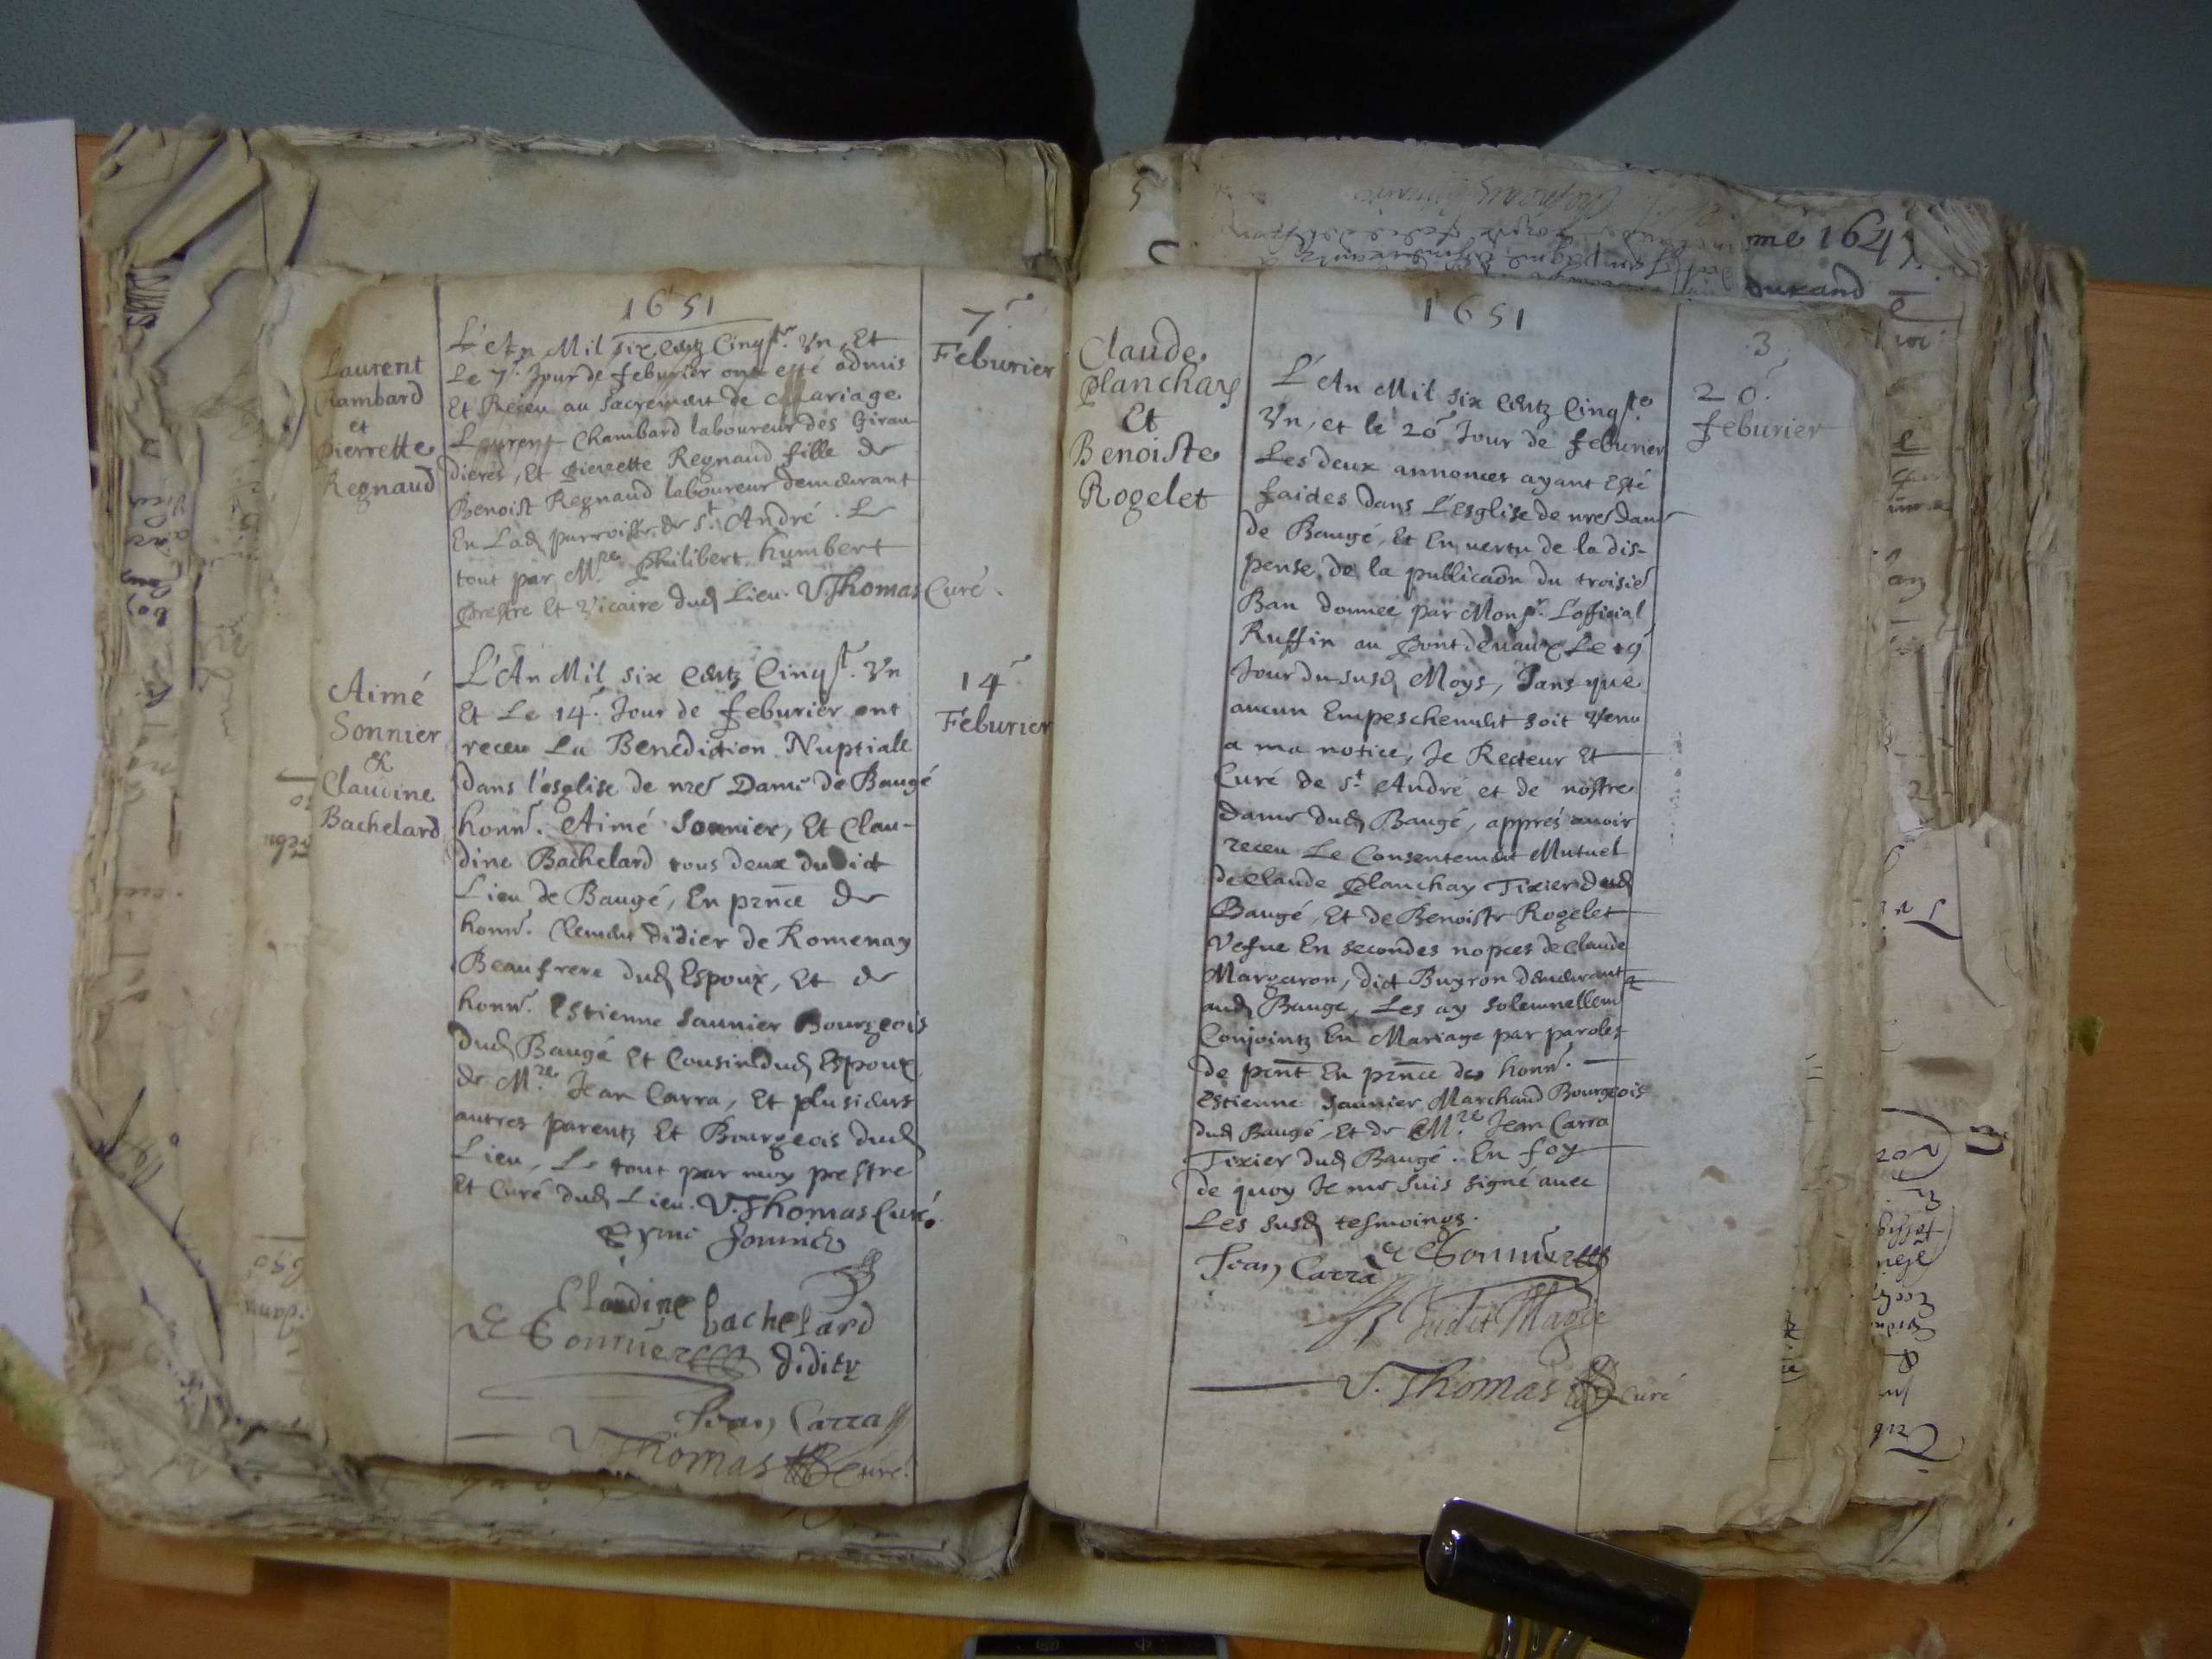 1651
Laurent
Chambard
et
Pierrette
Regnaud
L'An Mil six centz Cinqte Vn, Et
Le 7e Jour de feburier ont esté admis
Et Receu au Sacrement de Mariage
Laurent Chambard laboureur des Girau
dieres, Et Pierrette Regnaud fille de
Benoist Regnaud laboureur demeurant
En Lad parroisse de St André. Le
tout par Mre Philibert humbert
prestre Et Vicaire dud Lieu. V. Thomas Curé.
7e
Feburier
Aimé
Sonnier
&
Claudine
Bachelard
L'An Mil six Centz Cinqte Vn
Et Le 14e Jour de feburier ont
receu La Benediction Nuptiale
dans l'esglise de nre Dame de Baugé
honn. Aimé Sonnier, Et Clau-
dine Bachelard tous deux dudict
Lieu de Baugé, En prnce de
honn. Clement didier de Romenay
Beaufrere dud Espoux, Et de
honn. Estienne Saunier Bourgeois
dud Baugé Et Cousin dud Espoux
de Mre Jean Carra, Et plusieurs
autres parentz Et Bourgeois dud
Lieu, Le tout par moy prestre
Et Curé dud Lieu. V. Thomas Curé.
Eyme Sonnier
Claudine bachelard
E Sonnier didier
Jean Carra
V. Thomas Curé.
14e
Feburier
1651
3
Claude
Planchay
Et
Benoiste
Rogelet
L'An Mil six Centz Cinqte
Vn, et le 20e Jour de feburier
Les deux annonces ayant Esté
faides dans L'esglise de nre dame
de Baugé, Et En vertu de la dis-
pense de la publicaon du troisie
Ban donnee par Monsr. L'official
Ruffin au Pontdevaux Le 19
Jour du susd Moys, Sans que
aucun Empeschement soit Venu
a ma notice, Je Recteur Et
Curé de St André et de nostre
dame dud Baugé, apprés avoir
receu Le Consentement Mutuel
de Claude Planchay Tixier dud
Baugé, Et de Benoiste Rogelet
Vefue En secondes nopces de Claude
Margaron, dict Buyron demeurant
aud Baugé, Les ay Solemnellemt
Conjointz En Mariage par paroles
de prnt En prnce des honn.
Estienne Saunier Marchand Bourgeois
dud Baugé, Et de Mre Jean Carra
Tixier dud Baugé. En foy
de quoy Je me suis signé avec
Les susd tesmoings.
Jean Carra E Sonnier
V. Thomas Curé
20e
feburier
5
me 164
durand